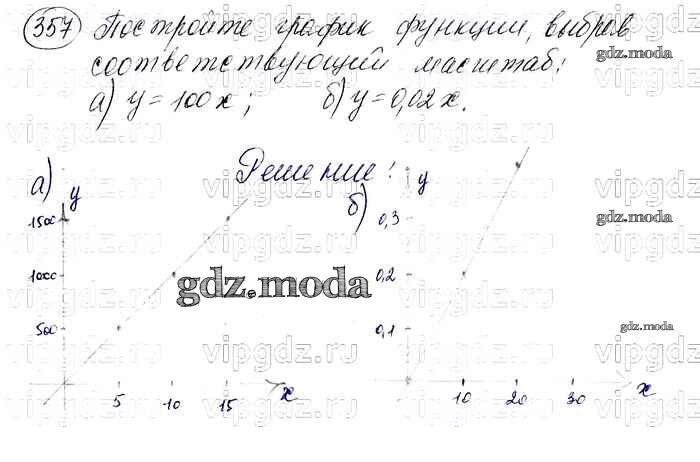 357 Постройте график функции, выбрав
соответствующий масштаб:
а) y = 100x; б) y = 0,02x.
Решение:
а)
y
1500
1000
500
5 10 15 x
б)
y
0,3
0,2
0,1
10 20 30 x
gdz.moda
gdz.moda
gdz.moda
gdz.moda
vipgdz.ru